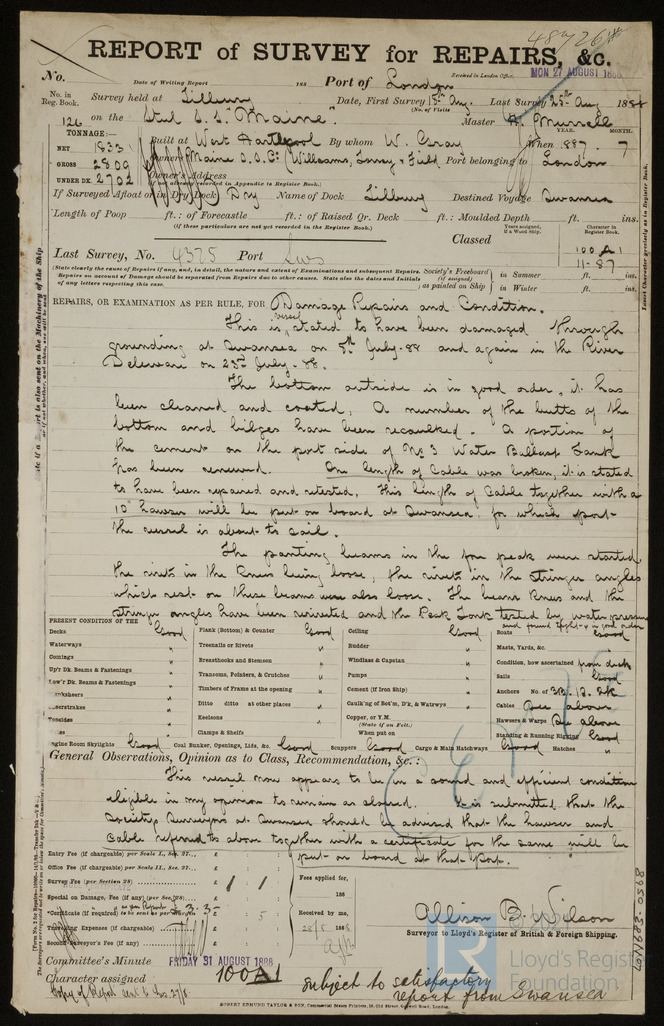 48a/26
REPORT of SURVEY for REPAIRS, &c.
No. Date of Writing Report 188 Port of London Received in London Office MON 27 AUGUST 1888
No. in Reg. Book. Survey held at Tilbury Date, First Survey 18th Aug. Last Survey 25th Aug 1888
(No. of Visits)
126 on the Steel S.S. "Maine" Master A. Murrell
TONNAGE:— YEAR. MONTH.
NET 1833 Built at West Hartlepool By whom W. Gray When 1887. 7
GROSS 2809 Owners Maine S.S. Co. (Williams, Torrey & Feild Port belonging to London
UNDER DK. 2702 Owner's Address
(if not already recorded in Appendix to Register Book.)
If Surveyed Afloat or in Dry Dock Dry Name of Dock Tilbury Destined Voyage Swansea
Length of Poop ft.: of Forecastle ft.: of Raised Qr. Deck ft.: Moulded Depth ft. ins.
(If these particulars are not yet recorded in the Register Book.)
Classed
Years assigned, if a Wood Ship.
Character in Register Book.
100 A 1
11-87
Last Survey, No. 4325 Port Sws
(State clearly the cause of Repairs if any, and, in detail, the nature and extent of Examinations and subsequent Repairs. Repairs on account of Damage should be separated from Repairs due to other causes. State also the dates and Initials of any letters respecting this case.
Society's Freeboard (if assigned) as painted on Ship in Summer ft. ins.
in Winter ft. ins.
REPAIRS, OR EXAMINATION AS PER RULE, FOR Damage Repairs and Condition.
This vessel is stated to have been damaged through
grounding at Swansea on 5th July-88 and again in the River
Deleware on 23rd July-88.
The bottom outside is in good order, it has
been cleaned and coated, A number of the butts of the
bottom and bilges have been recaulked. A portion of
the cement on the port side of No 3 Water Ballast Tank
has been renewed. One length of Cable was broken, it is stated
to have been repaired and retested, This length of Cable together with a
10" hawser will be put on board at Swansea, for which port
the vessel is about to sail.
The panting beams in the fore peak were started
the rivets in the knees being loose, the rivets in the stringer angles
which rest on these beams were also loose. The beams knees and the
stringer angles have been reriveted and the Peak Tank tested by water pressure
and found tight & in good order
PRESENT CONDITION OF THE
Decks Good
Waterways "
Comings "
Up'r Dk. Beams & Fastenings "
Low'r Dk. Beams & Fastenings "
Topsides "
Engine Room Skylights Good
Plank (Bottom) & Counter Good
Treenails or Rivets "
Breasthooks and Stemson "
Transoms, Pointers, & Crutches "
Timbers of Frame at the opening "
Ditto ditto at other places "
Keelsons "
Clamps & Shelfs
Coal Bunker, Openings, Lids, &c. Good
Ceiling Good
Rudder "
Windlass & Capstan "
Pumps "
Cement (if Iron Ship) "
Caulk'ng of Bot'm, D'k, & Watrwys "
Copper, or Y.M.
(State if on Felt.)
When put on
Scuppers Good Cargo & Main Hatchways Good
Boats Good
Masts, Yards, &c. "
Condition, how ascertained from deck
Sails Good
Anchors No. of 3B. 1S. 2K
Cables See above
Hawsers & Warps See above
Standing & Running Rigging Good
Hatches "
General Observations, Opinion as to Class, Recommendation, &c.:
This vessel now appears to be in a sound and efficient condition
eligible in my opinion to remain as classed. It is submitted that the
Society's Surveyors at Swansea should be advised that the hawser and
cable referred to above together with a certificate for the same will be
put on board at that port.
Entry Fee (if chargeable) per Scale I., Sec. 27... £ : :
Office Fee (if chargeable) per Scale II., Sec. 27... £ : :
Survey Fee (per Section 28) £ 1 : 1 :
Special on Damage, Fee (if any) (per Sec. 28) £ : :
3.3-
*Certificate (if required) to be sent as per margin : 5 :
Travelling Expenses (if chargeable) £ : :
Second Surveyor's Fee (if any) £ : :
Fees applied for,
188
Received by me,
28/8 188
Allison B. Wilson
Surveyor to Lloyd's Register of British & Foreign Shipping.
Committee's Minute FRIDAY 31 AUGUST 1888
Character assigned 100A1 subject to satisfactory
report from Swansea
Copy of Report sent to Sws. 27/8
ROBERT EDMUND TAYLOR & SON, Commercial Steam Printers, 19, Old Street, Goswell Road, London.
LR
Lloyd's Register
Foundation
LON683-0568
Insert Character precisely as in Register Book.